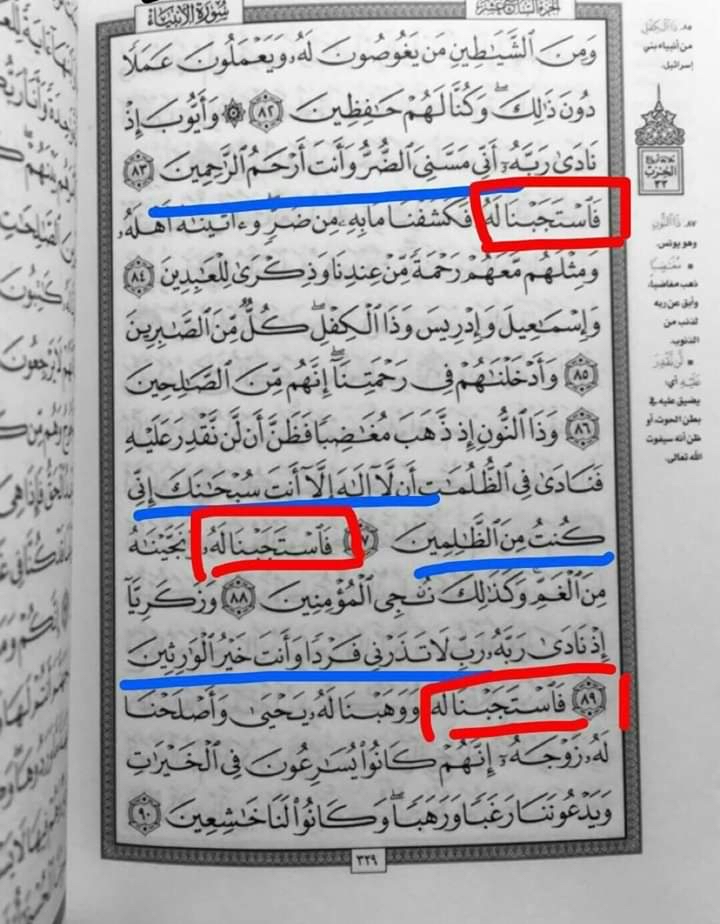 سُورَةُ الأَنبِيَاءِ
الجُزءُ السَّابِعَ عَشَرَ
وَمِنَ ٱلشَّيَـٰطِينِ مَن يَغُوصُونَ لَهُۥ وَيَعْمَلُونَ عَمَلًا
دُونَ ذَٰلِكَ ۖ وَكُنَّا لَهُمْ حَـٰفِظِينَ ٨٢ ۞ وَأَيُّوبَ إِذْ
نَادَىٰ رَبَّهُۥٓ أَنِّى مَسَّنِىَ ٱلضُّرُّ وَأَنتَ أَرْحَمُ ٱلرَّٰحِمِينَ ٨٣
فَٱسْتَجَبْنَا لَهُۥ فَكَشَفْنَا مَا بِهِۦ مِن ضُرٍّ ۖ وَءَاتَيْنَـٰهُ أَهْلَهُۥ
وَمِثْلَهُم مَّعَهُمْ رَحْمَةً مِّنْ عِندِنَا وَذِكْرَىٰ لِلْعَـٰبِدِينَ ٨٤
وَإِسْمَـٰعِيلَ وَإِدْرِيسَ وَذَا ٱلْكِفْلِ ۖ كُلٌّ مِّنَ ٱلصَّـٰبِرِينَ
٨٥ وَأَدْخَلْنَـٰهُمْ فِى رَحْمَتِنَآ ۖ إِنَّهُم مِّنَ ٱلصَّـٰلِحِينَ
٨٦ وَذَا ٱلنُّونِ إِذ ذَّهَبَ مُغَـٰضِبًا فَظَنَّ أَن لَّن نَّقْدِرَ عَلَيْهِ
فَنَادَىٰ فِى ٱلظُّلُمَـٰتِ أَن لَّآ إِلَـٰهَ إِلَّآ أَنتَ سُبْحَـٰنَكَ إِنِّى
كُنتُ مِنَ ٱلظَّـٰلِمِينَ ٨٧ فَٱسْتَجَبْنَا لَهُۥ وَنَجَّيْنَـٰهُ
مِنَ ٱلْغَمِّ ۚ وَكَذَٰلِكَ نُـۨجِى ٱلْمُؤْمِنِينَ ٨٨ وَزَكَرِيَّآ
إِذْ نَادَىٰ رَبَّهُۥ رَبِّ لَا تَذَرْنِى فَرْدًا وَأَنتَ خَيْرُ ٱلْوَٰرِثِينَ
٨٩ فَٱسْتَجَبْنَا لَهُۥ وَوَهَبْنَا لَهُۥ يَحْيَىٰ وَأَصْلَحْنَا
لَهُۥ زَوْجَهُۥٓ ۚ إِنَّهُمْ كَانُوا۟ يُسَـٰرِعُونَ فِى ٱلْخَيْرَٰتِ
وَيَدْعُونَنَا رَغَبًا وَرَهَبًا ۖ وَكَانُوا۟ لَنَا خَـٰشِعِينَ ٩٠
٣٢٩
٨٥. ذَا الكِفْلِ
من أنبياء بني
إسرائيل.
الحِزْبُ
٣٣
٨٧. ذَا النُّونِ
وهو يونس.
مُغَاضِبًا
ذهب مغاضبا،
وأبق عن ربه
لذنب من
الذنوب.
لَن نَّقْدِرَ
عَلَيْهِ أي:
يضيق عليه في
بطن الحوت، أو
ظن أنه سيفوت
الله تعالى.